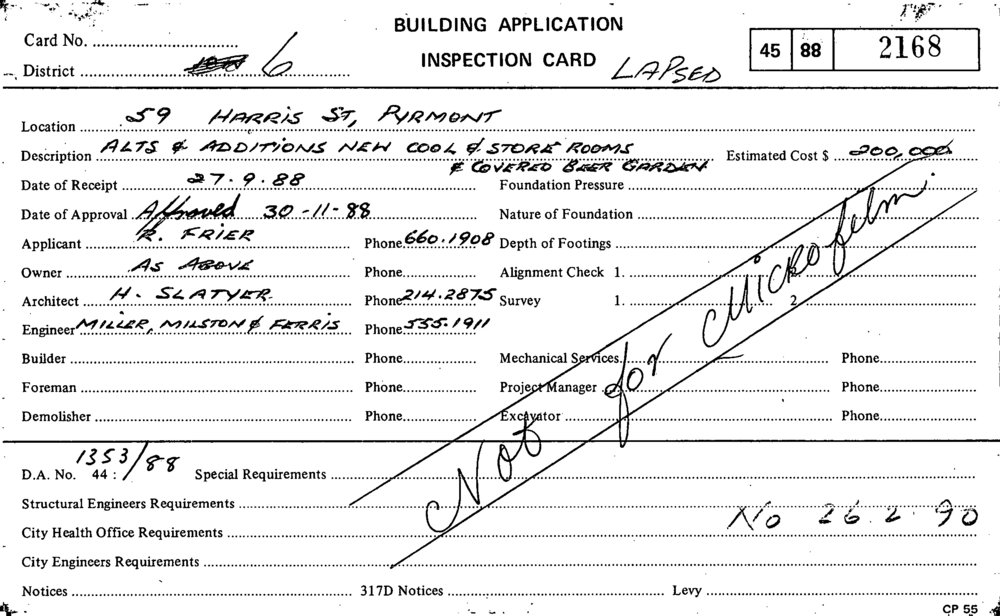 BUILDING APPLICATION
INSPECTION CARD
LAPSED
45 88 2168
Card No.
District 6
Location 59 HARRIS ST, PYRMONT
Description ALTS & ADDITIONS NEW COOL & STORE ROOMS
& COVERED BEER GARDEN
Estimated Cost $ 200,000
Date of Receipt 27.9.88 Foundation Pressure
Date of Approval Approved 30-11-88 Nature of Foundation
Applicant R. FRIER Phone 660.1908 Depth of Footings
Owner AS ABOVE Phone Alignment Check 1.
Architect H. SLATYER Phone 214.2875 Survey 1. 2
Engineer MILLER, MILSTON & FERRIS Phone 555.1911
Builder Phone Mechanical Services Phone
Foreman Phone Project Manager Phone
Demolisher Phone Excavator Phone
Not for Microfilm.
D.A. No. 44: 1353/88 Special Requirements
Structural Engineers Requirements
City Health Office Requirements No 26.2.90
City Engineers Requirements
Notices 317D Notices Levy
CP 55